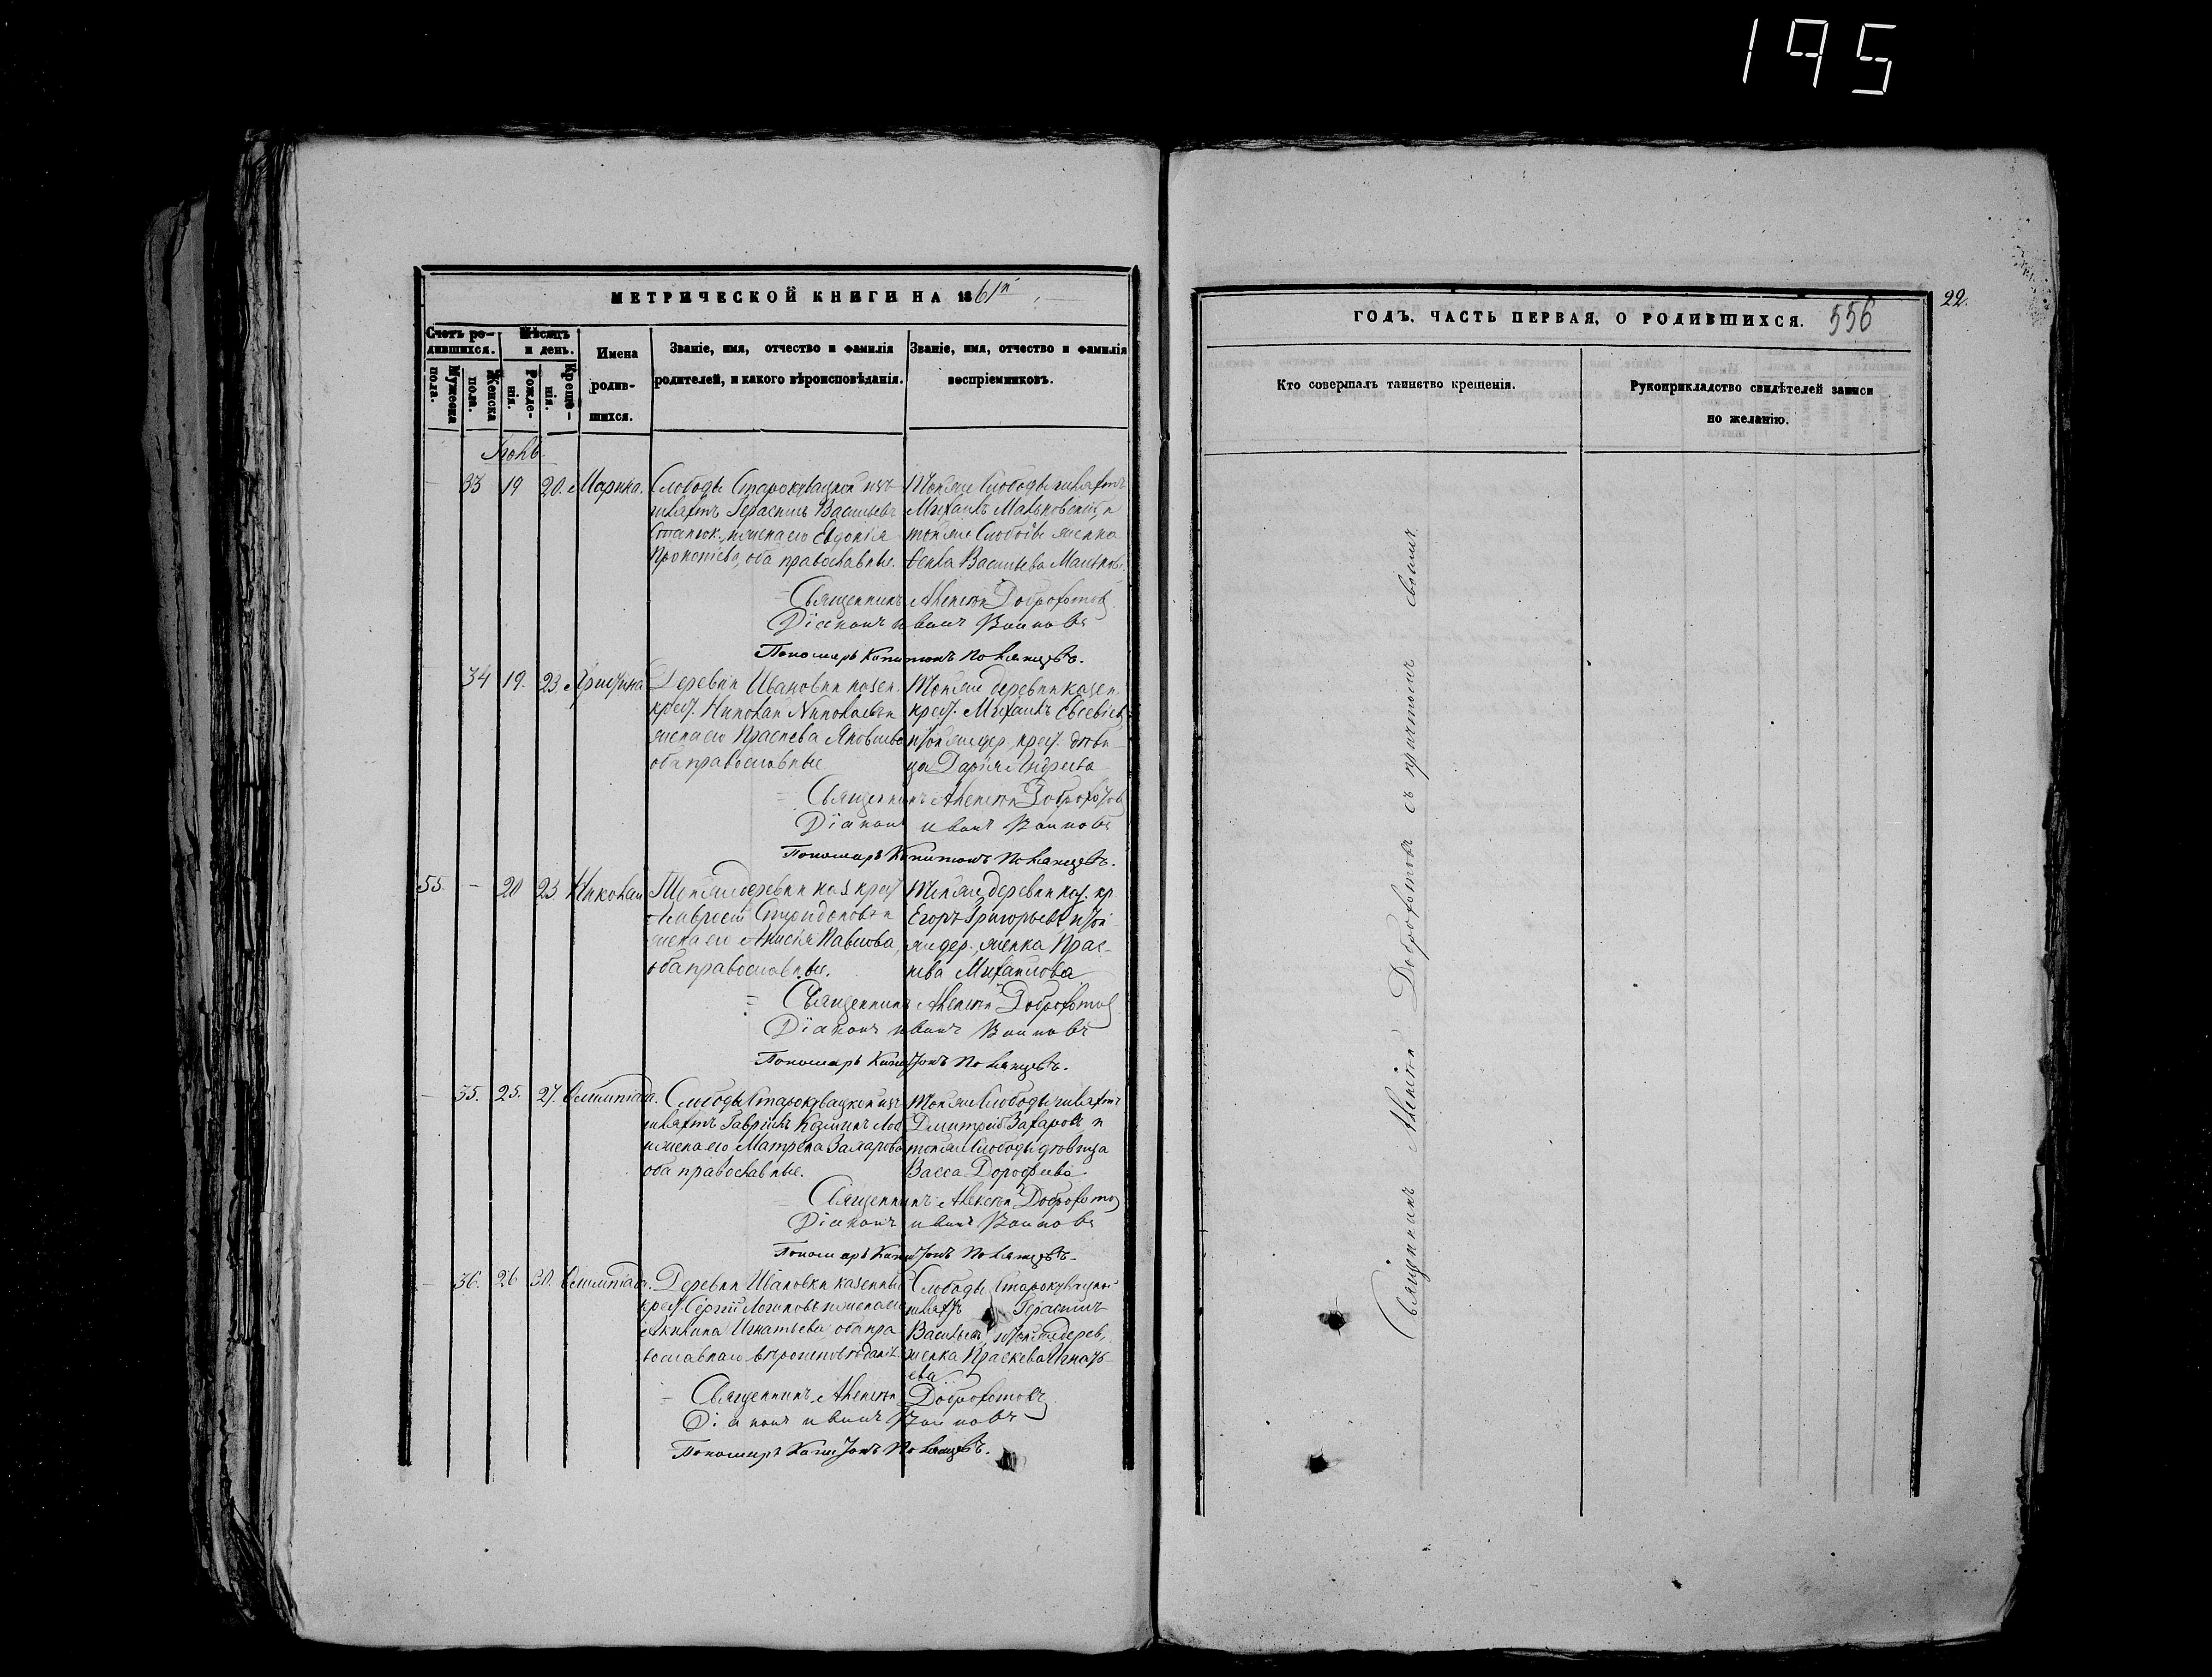 195
МЕТРИЧЕСКОЙ КНИГИ НА 1861й
Счетъ ро-
дившихся.
Мужеска
пола.
Женска
пола.
Мѣсяцъ
и день.
Рожде-
нія.
Креще-
нія.
Имена
родив-
шихся.
Званіе, имя, отчество и фамилія
родителей, и какого вѣроисповѣданія.
Званіе, имя, отчество и фамилія
воспріемниковъ.
Іюнь.
33 19 20. Марина.
Слободы Старокувацкой изъ
шляхтъ Герасимъ Васильевъ
и жена его Евдокія
Прокопіева, оба православные.
Той же Слободы шляхтъ
Михаилъ Маньковскій, и
той же Слободы женка
Васильева
Священникъ Алексѣй Доброхотов
Діаконъ иванъ Воиновъ
Пономарь Капитонъ
34 19. 23.
Деревни Ивановки казен.
крест. Николай Николаевъ и
жена его Праскева Яковлева
оба православные
Той же деревни казен.
крест. Михаилъ Евсевіев
и той же дер. крест. дѣви-
ца Дарія Андреева
Священникъ Алексѣй Доброхотов
Діаконъ иванъ Воиновъ
Пономарь Капитонъ
55. - 20 23 Николай
Той же деревни каз крест
Спиридоновъ и
жена его Анисія Павлова,
оба православные.
Той же деревни каз. кр.
Егоръ Григорьевъ и той
же дер. женка Прас-
кева Михаилова
Священникъ Алексѣй Доброхотов
Діаконъ иванъ Воиновъ
Пономарь Капитонъ
35. 25. 27. Олимпіада.
Слободы Старокувацкой изъ
шляхтъ Гавріилъ Козминъ
и жена его Матрена Захарова
оба православные.
Той же Слободы шляхтъ
Дмитрій Захаровъ и
той же Слободы дѣвица
Васса Дорофеева.
Священникъ Алексѣй Доброхотов
Діаконъ иванъ Воиновъ
Пономарь Капитонъ
36. 26 30. Олимпіада.
Деревни Ивановки казенный
крест. Сергій Логиновъ и жена его
Акилина Игнатьева оба пра
вославнаго вѣроисповѣданія.
Слободы Старокувацкой
шляхтъ Герасимъ
Васильевъ и той же дерев.
женка Праскева Игнать-
ева
Священникъ Алексѣй Доброхотовъ
Діаконъ иванъ Воиновъ
Пономарь Капитонъ
ГОДЪ. ЧАСТЬ ПЕРВАЯ, О РОДИВШИХСЯ.
556
22.
Кто совершалъ таинство крещенія.
Рукоприкладство свидѣтелей записи
по желанію.
Священникъ Алексѣй Доброхотовъ съ причтомъ своимъ.